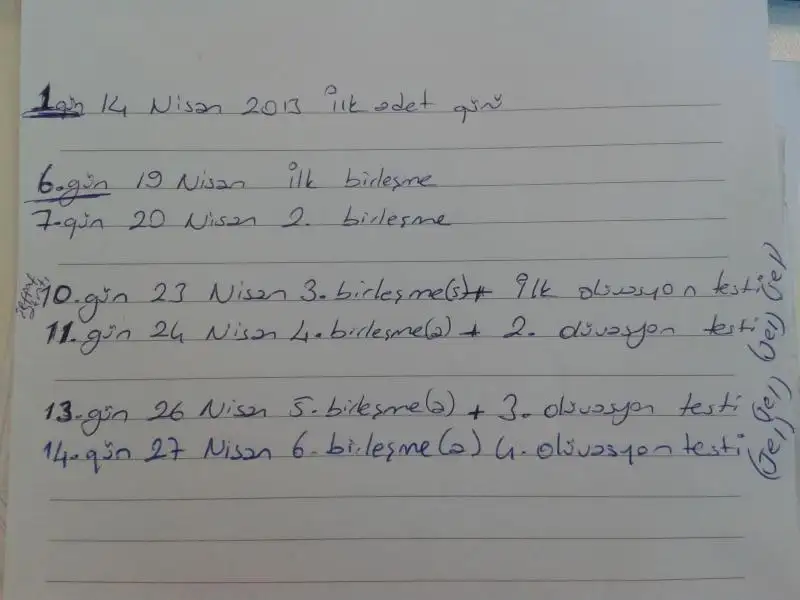 1.gün 14 Nisan 2013 ilk adet günü
6.gün 19 Nisan ilk birleşme
7.gün 20 Nisan 2. birleşme
10.gün 23 Nisan 3.birleşme(s)+ ilk olüvasyon testi (jel)
11.gün 24 Nisan 4.birleşme(a) + 2. olüvasyon testi (jel)
13.gün 26 Nisan 5.birleşme(a) + 3. olüvasyon testi (jel)
14.gün 27 Nisan 6.birleşme(a) 4. olüvasyon testi (jel)